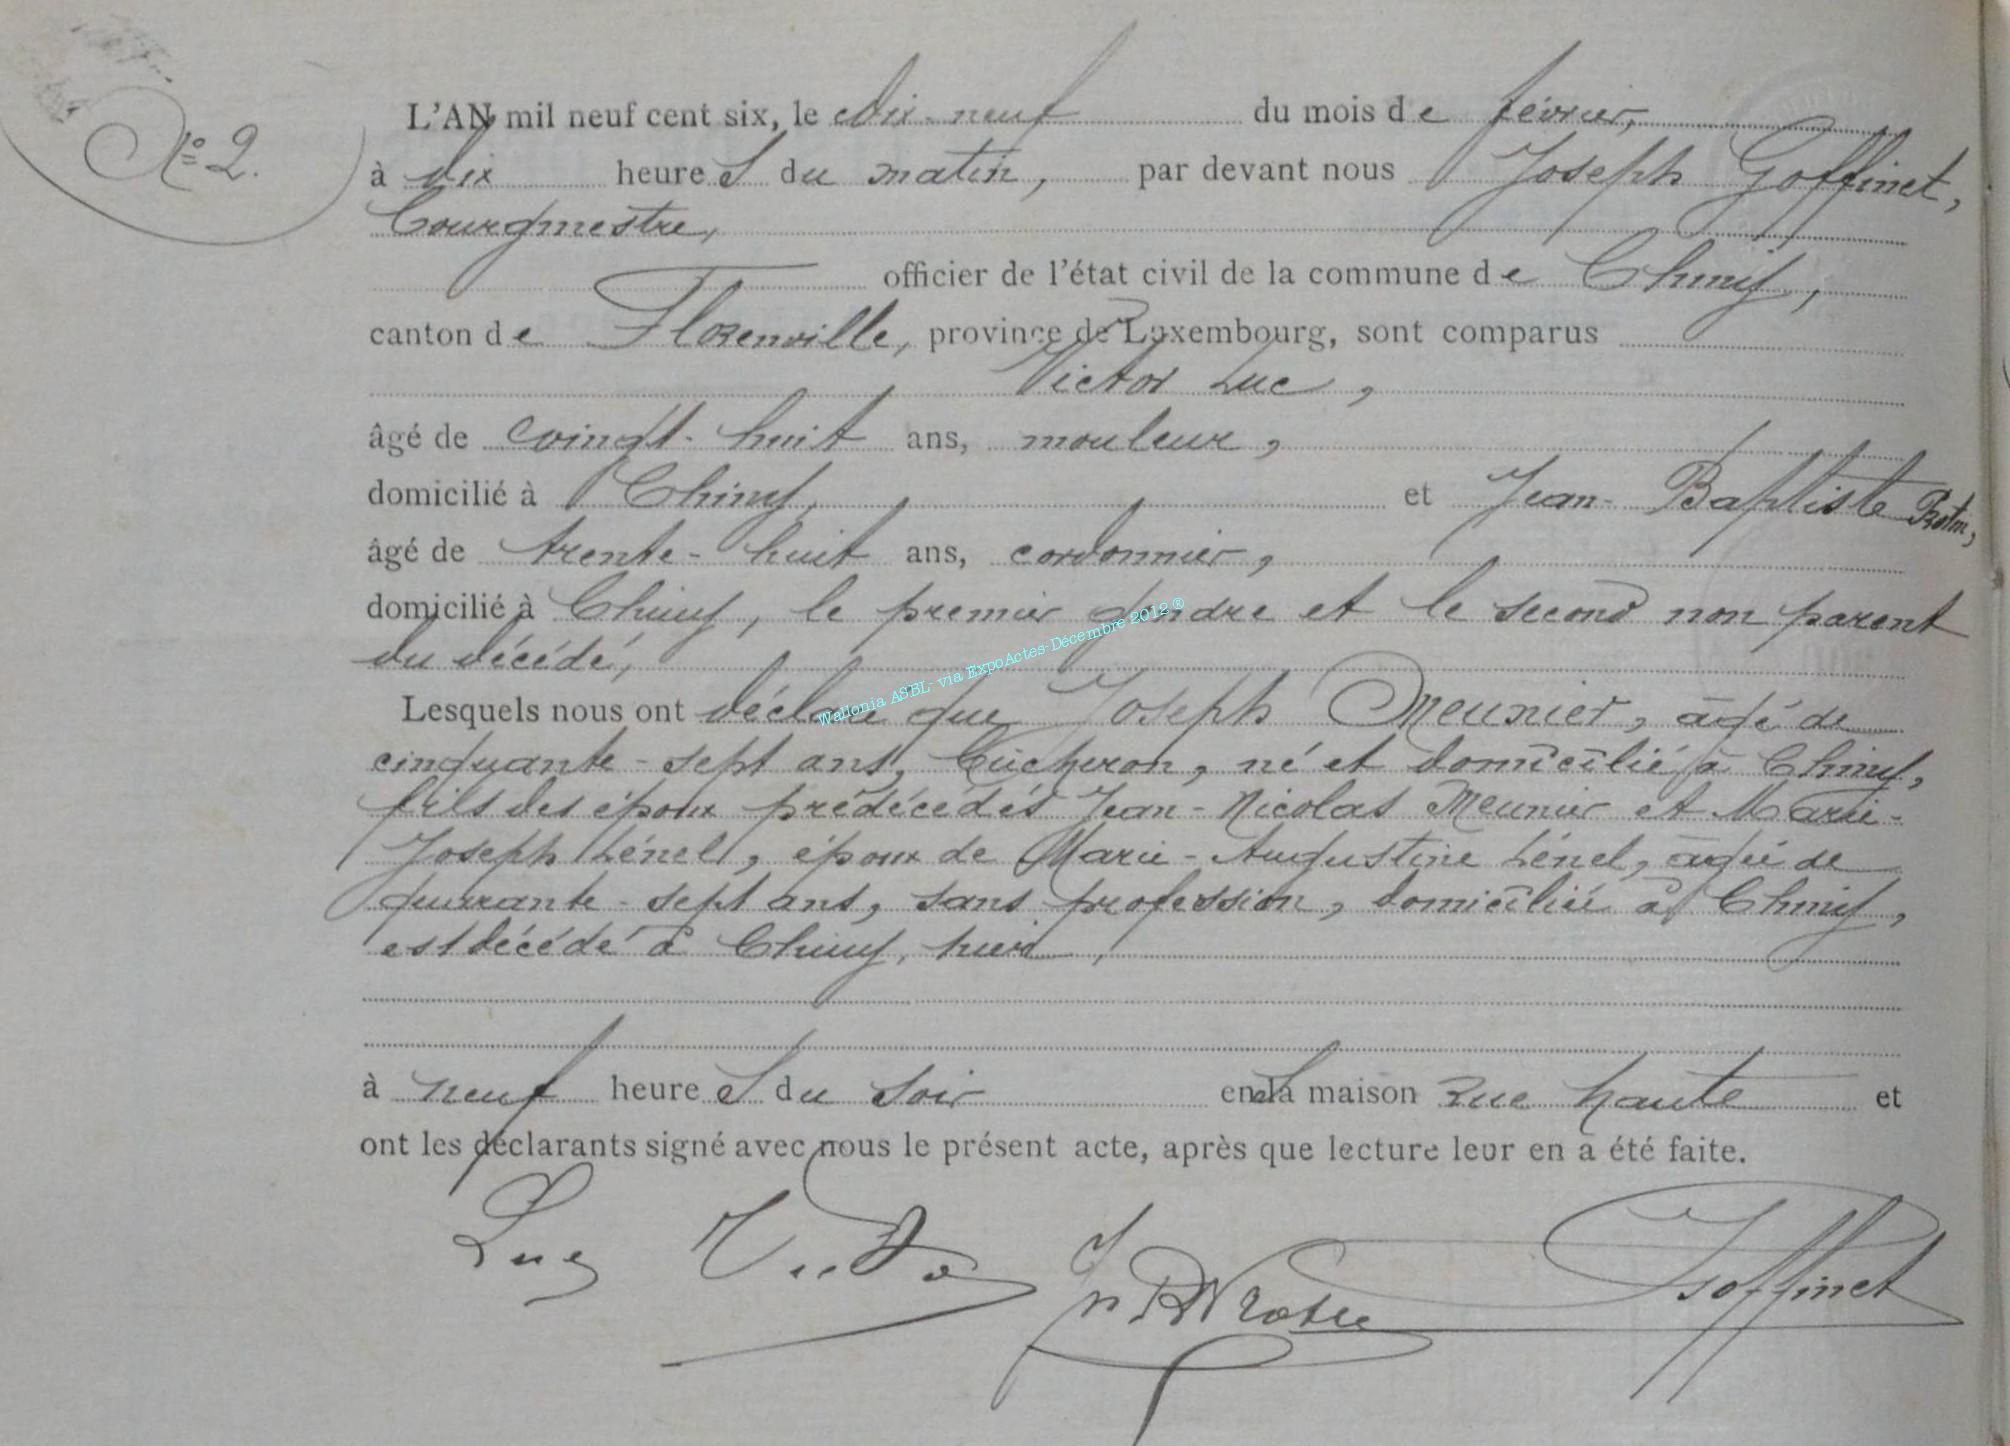 N° 2.
L'AN mil neuf cent six, le dix-neuf du mois de février,
à dix heures du matin, par devant nous Joseph Goffinet,
bourgmestre,
officier de l'état civil de la commune de Chiny,
canton de Florenville, province de Luxembourg, sont comparus
Victor Luc,
âgé de vingt-huit ans, mouleur,
domicilié à Chiny, et Jean-Baptiste
âgé de trente-huit ans, cordonnier,
domicilié à Chiny, le premier gendre et le second non parent
du décédé,
Lesquels nous ont déclaré que Joseph Meunier, âgé de
cinquante-sept ans, bûcheron, né et domicilié à Chiny,
fils des époux prédécédés Jean-Nicolas Meunier et Marie-
Joseph Lénel, époux de Marie-Augustine Lénel, âgée de
quarante-sept ans, sans profession, domiciliée à Chiny,
est décédé à Chiny, hier,
à neuf heures du soir en sa maison rue haute et
ont les déclarants signé avec nous le présent acte, après que lecture leur en a été faite.
Luc Goffinet
Wallonia ASBL- via ExpoActes-Décembre 2012 ®